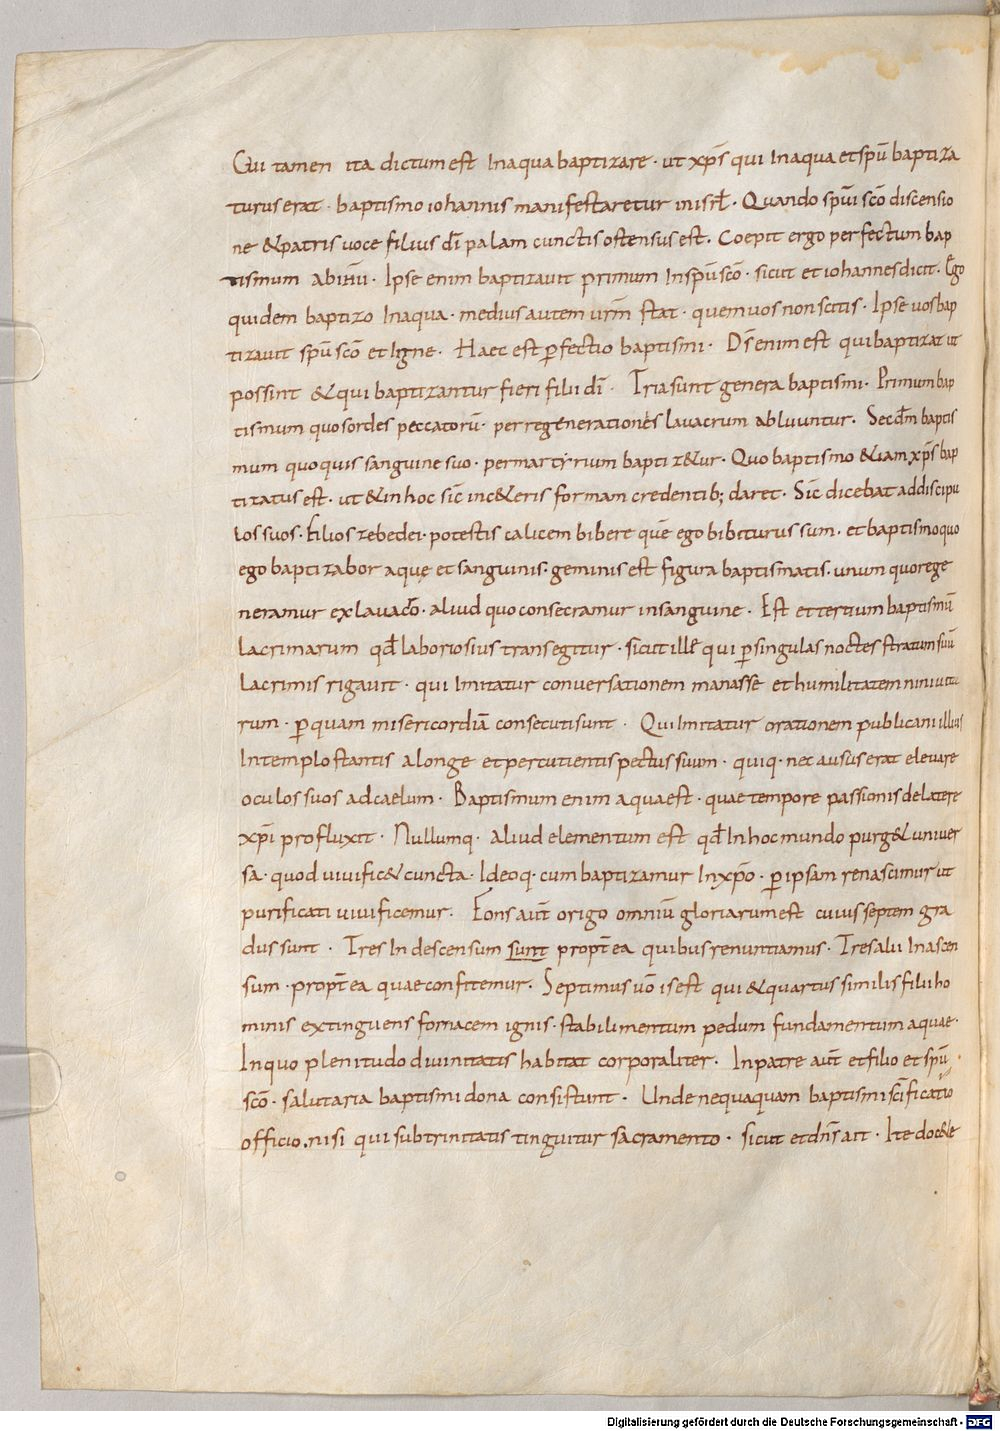 Cui tamen ita dictum est In aqua baptizare · ut xp̄s qui In aqua et spū baptiza
turus erat · baptismo iohannis manifestaretur in isrl̄ · Quando spūi scō discensio
ne & patris uoce filius dī palam cunctis ostensus est. Coepit ergo perfectum bap
tismum ab ihū · Ipse enim baptizauit primum In spū scō · sicut et iohannes dicit · Ego
quidem baptizo In aqua · medius autem urm̄ stat · quem uos non scitis · Ipse uos bap
tizauit spū scō et Igne · Haec est ꝑfectio baptismi · Dś enim est qui baptizat ut
possint & qui baptizantur fieri filii dī · Tria sunt genera baptismi · Primum bap
tismum quo sordes peccatorū · per regenerationes lauacrum abluuntur. Secdm̄ baptis
mum quo quis sanguine suo · per martyrium baptiz&ur · Quo baptismo &iam xp̄s bap
tizatus est · ut & in hoc sic̄ in c&eris formam credentib; daret · Sic̄ dicebat ad discipu
los suos · filios zebedei · potestis calicem bibere quē ego bibiturus sum · et baptismo quo
ego baptizabor aquę et sanguinis · geminis est figura baptismatis · unum quo rege
neramur ex lauacrō · aliud quo consecramur in sanguine · Est et tertium baptismū
Lacrimarum qd̄ laboriosius transegitur · sicut ille qui ꝑ singulas noctes stratum suū
Lacrimis rigauit · qui Imitatur conuersationem manasse et humilitatem niniuita
rum · ꝑ quam misericordiā consecuti sunt · Qui Imitatur orationem publicani illius
In templo stantis a longe et percutientis pectus suum · quiq · nec ausus erat eleuare
oculos suos ad caelum · Baptismum enim aqua est · quae tempore passionis de latere
xp̄i profluxit · Nullumq · aliud elementum est qd̄ In hoc mundo purg& uniuer
sa · quod uiuific& cuncta · Ideoq · cum baptizamur In xp̄o · ꝑ ipsam renascimur ut
purificati uiuificemur · Fons aūt origo omniū gloriarum est cuius septem gra
dus sunt · Tres In descensum sunt propt̄ ea quibus renuntiamus · Tres alii In ascen
sum · propt̄ ea quae confitemur. Septimus uō is est qui & quartus similis filii ho
minis extinguens fornacem ignis · stabilimentum pedum fundamentum aquae ·
In quo plenitudo diuinitatis habitat corporaliter. In patre aūt et filio et spū
scō · salutaria baptismi dona consistunt · Unde nequaquam baptismi sc̄ificatio
officio . nisi qui sub trinitatis tinguitur sacramento · sicut et dn̄s ait · Ite doc&e
Digitalisierung gefördert durch die Deutsche Forschungsgemeinschaft - DFG